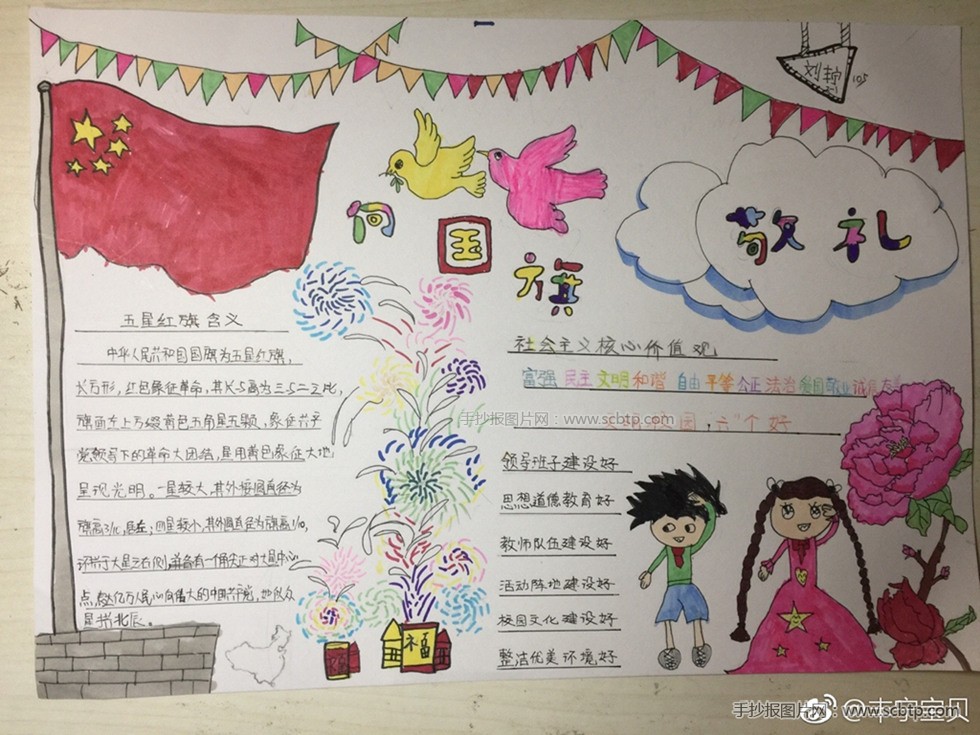 刘
105
向国旗
敬礼
五星红旗含义
中华人民共和国国旗为五星红旗,
长方形,红色象征革命,其长与高为三与二之比,
旗面左上方缀黄色五角星五颗,象征共产
党领导下的革命大团结,星用黄色象征大地
呈现光明。一星较大,其外接圆直径为
旗高3/10,居左;四星较小,其外圆直径为旗高1/10,
环拱于大星之右侧,并各有一个角尖正对大星中心
点,表达亿万人民心向伟大的中国共产党,
星拱北辰。
社会主义核心价值观
富强 民主 文明 和谐 自由 平等 公正 法治 爱国 敬业 诚信 友善
文明校园,六"个好
领导班子建设好
思想道德教育好
教师队伍建设好
活动阵地建设好
校园文化建设好
整洁优美环境好
福
手抄报图片网:www.scbtp.com
手抄报图片网:www.scbtp.com